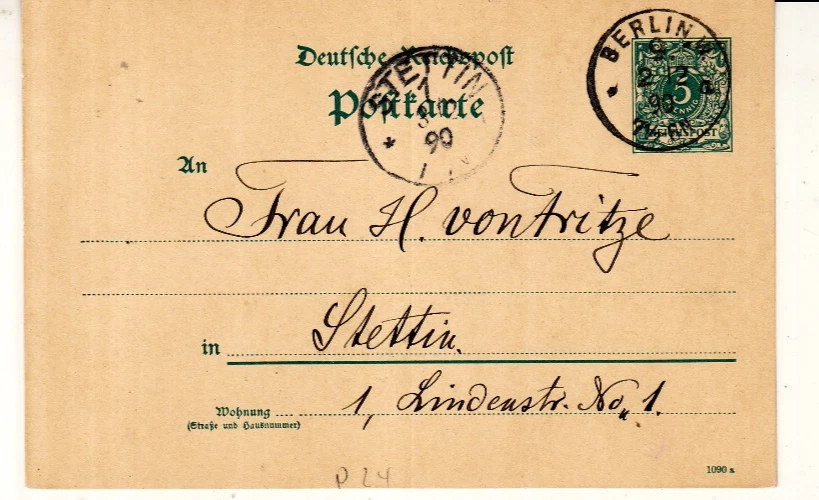 Deutsche Reichspost
Postkarte
STETTIN
1
90
BERLIN W
90
5
PFENNIG
REICHSPOST
An
Frau H. von Fritze
in Stettin.
Wohnung 1, Lindenstr. No. 1.
(Straße und Hausnummer)
P 24
1090 a